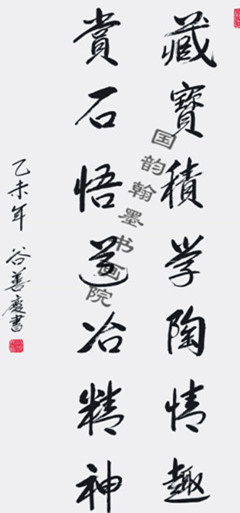 藏寶積学陶情趣
賞石悟道冶精神
乙未年 谷善慶書
国韵翰墨书画院